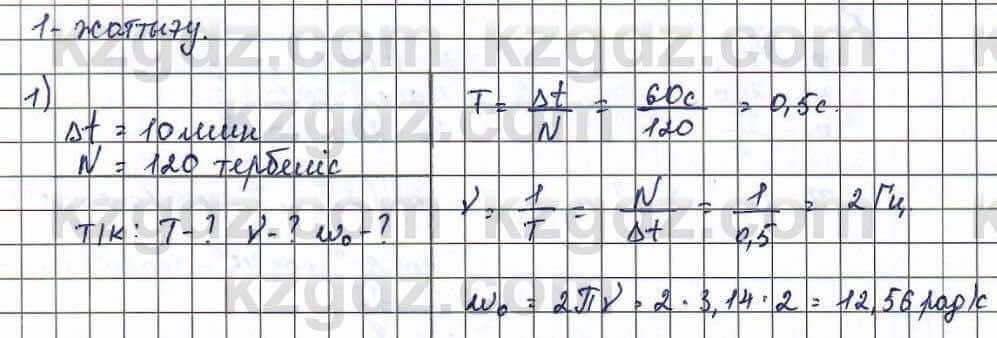 1-жаттығу.
1)
Δt = 10 мин
N = 120 тербеліс
Т/к: T-? ν-? ω₀-?
T = Δt/N = 60с/120 = 0,5с.
ν = 1/T = N/Δt = 1/0,5 = 2 Гц
ω₀ = 2πν = 2·3,14·2 = 12,56 рад/с
kzgdz.com